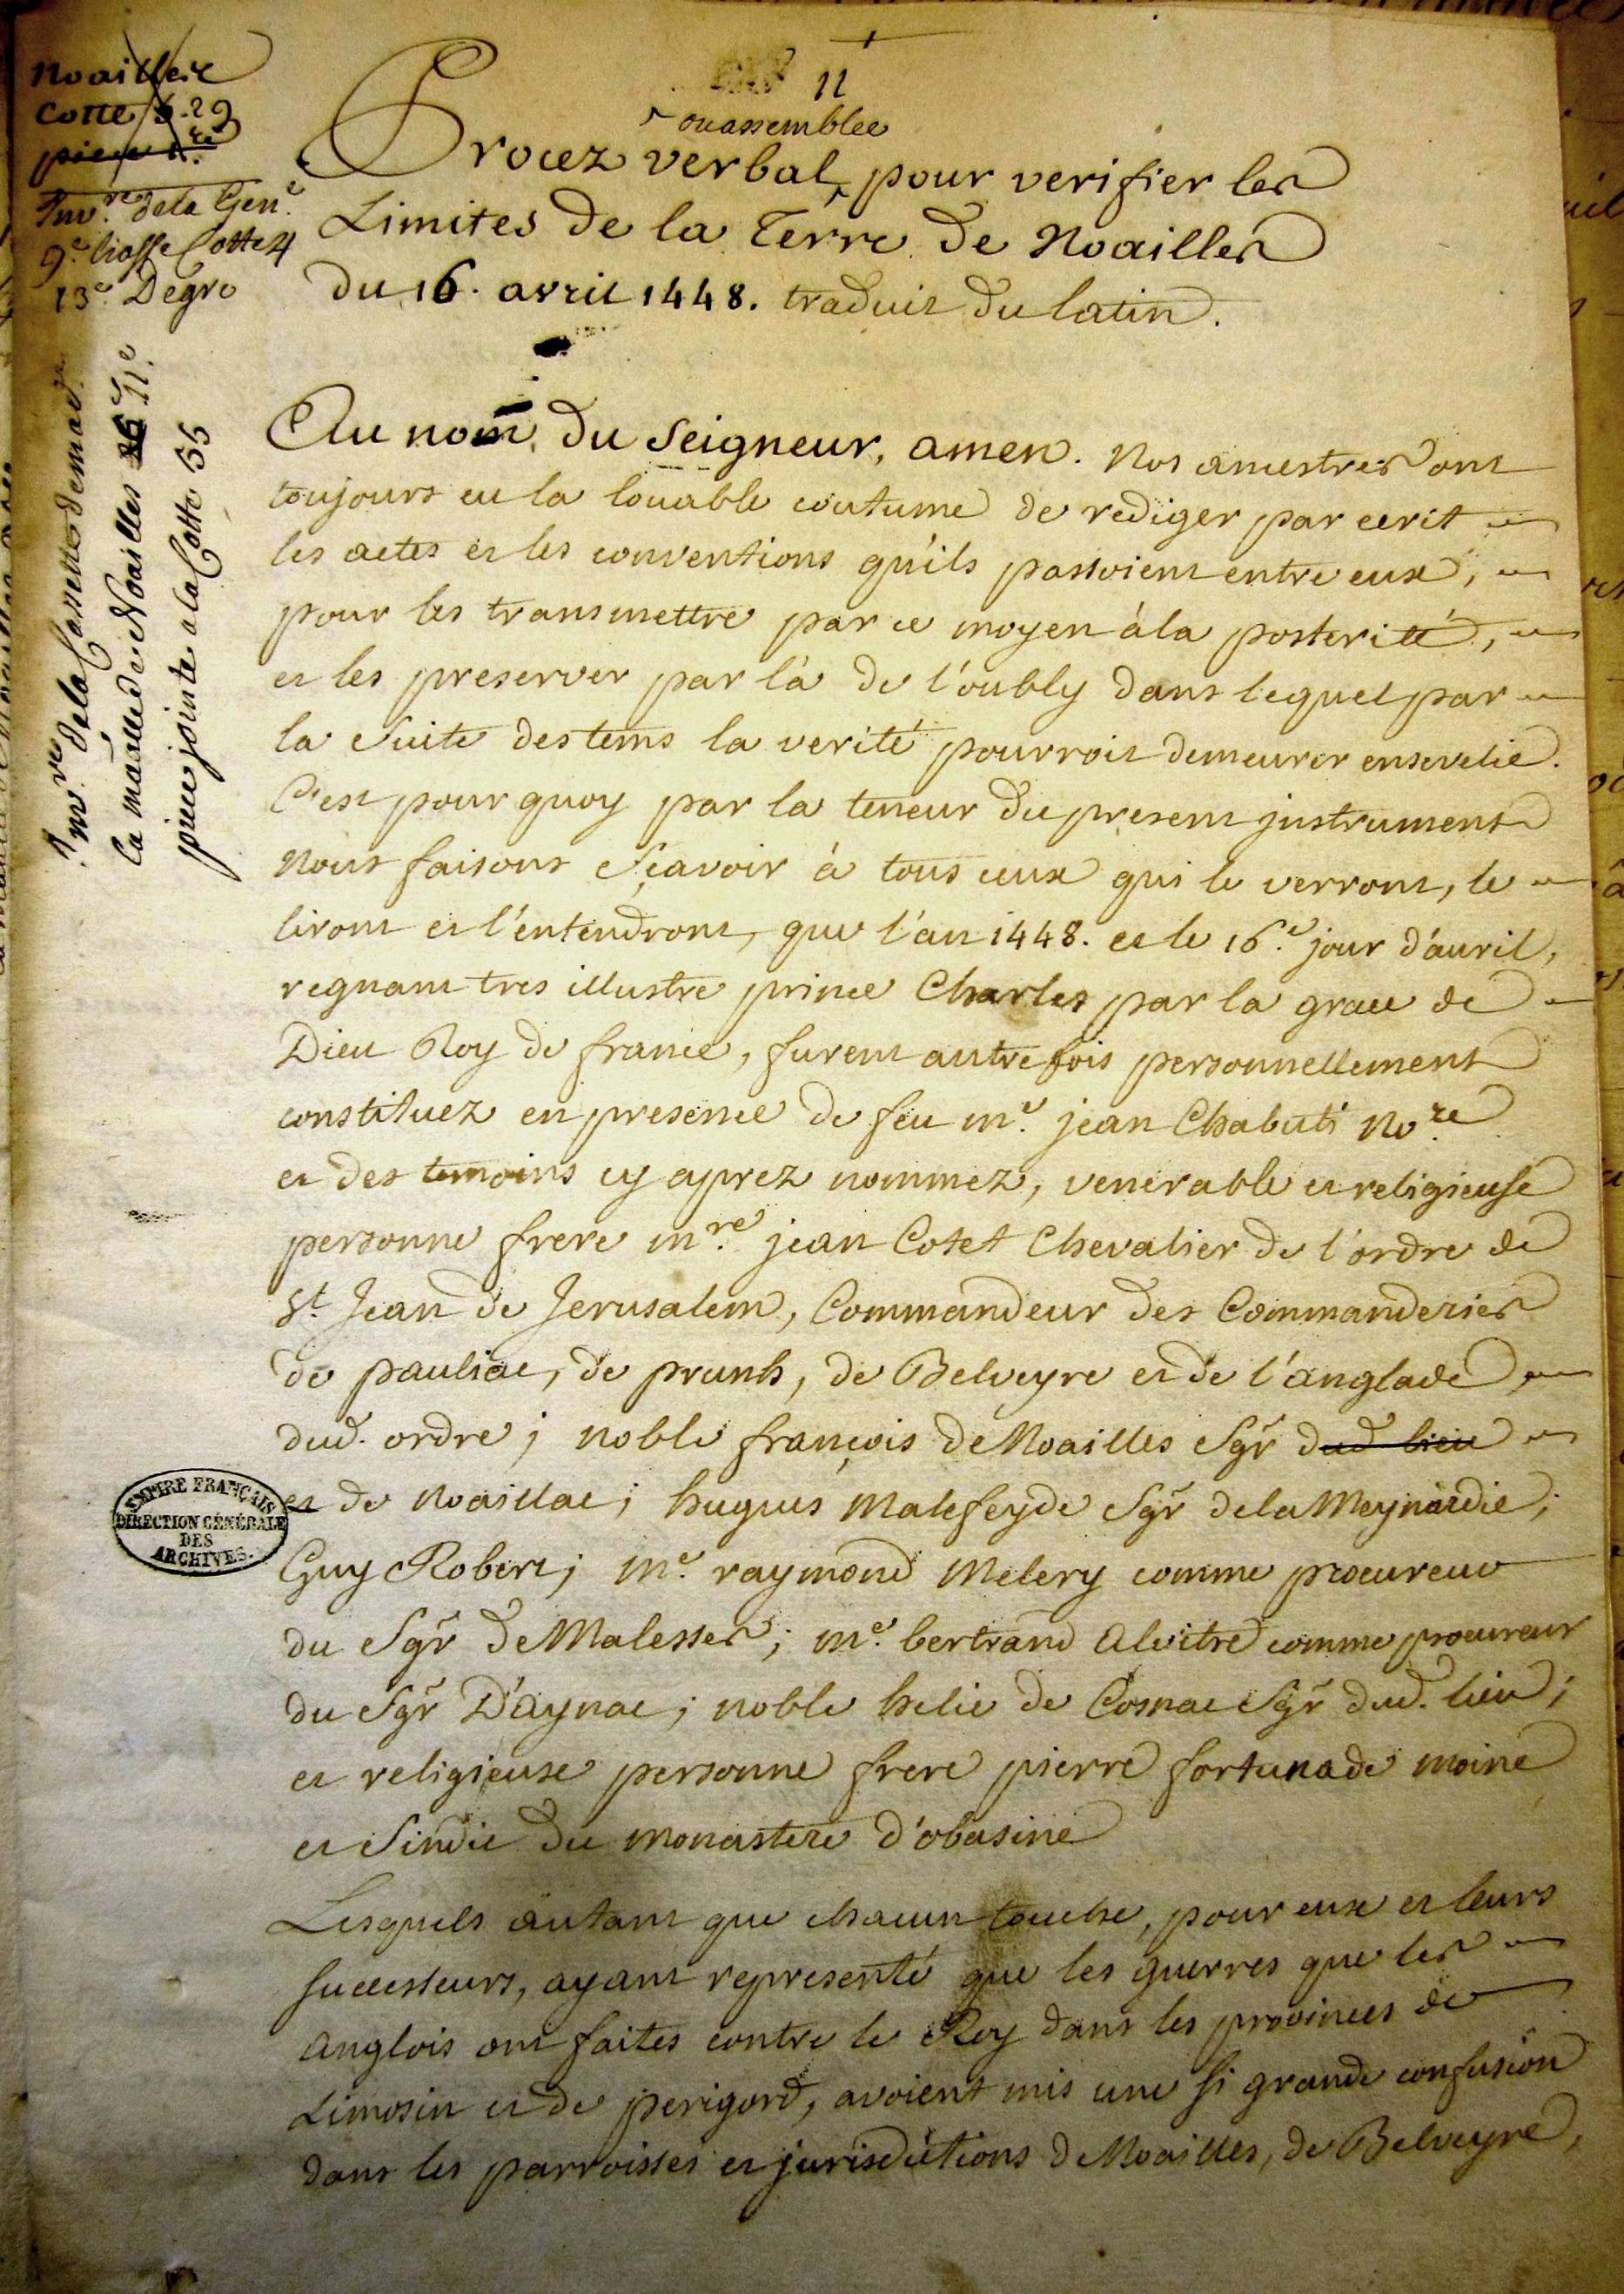 Noailles
Cotte 6.29
piece 1.ere
Inv.re de la Gen.e
9.e liasse Cotte 4
13.e Degré
Inv.re de la Cassette
la maille de Noailles 11.e
piece jointe a la Cotte 55
11
ou assemblée
Procez verbal pour verifier les
Limites de la Terre de Noailles
du 16. avril 1448. traduit du latin.
Au nom du Seigneur, amen. Nos ancestres ont
toujours eu la louable coutume de rediger par ecrit
les actes et les conventions qu'ils passoient entre eux,
pour les transmettre par ce moyen à la posterité,
et les preserver par là de l'oubly dans lequel par
la Suite des tems la verité pourroit demeurer ensevelie.
C'est pourquoy par la teneur du present jnstrument
Nous faisons Sçavoir à tous ceux qui le verront, le
liront et l'entendront, que l'an 1448. et le 16.e jour d'auril,
regnant tres illustre prince Charles par la grace de
Dieu Roy de france, furent autrefois personnellement
constituez en presence de feu m.e jean Chabuti No.re
et des temoins cy aprez nommez, venerable et religieuse
personne frere m.re jean Cotet Chevalier de l'ordre de
St. Jean de Jerusalem, Commandeur des Commanderies
de pauliac, de prunh, de Belveyre et de l'anglade
dud. ordre; noble françois de Noailles Sgr dud lieu
et de Noaillac; hugues Malefeyde Sgr de la Meynardie;
Guy Robert; m.e raymond Melery comme procureur
du Sgr de Malesses; m.e bertrand Alvitre comme procureur
du Sgr D'aynac; noble helie de Cosnac Sgr dud. lieu;
et religieuse personne frere pierre fortunade moine
et Sindic du monastere d'obasine
Lesquels autant que chacun touche, pour eux et leurs
successeurs, ayant representé que les guerres que les
anglois ont faites contre le Roy dans les provinces de
Limosin et de perigord, avoient mis une si grande confusion
dans les parroisses et jurisdictions de Noailles, de Belveyre,
EMPIRE FRANÇAIS
DIRECTION GÉNÉRALE
DES
ARCHIVES.